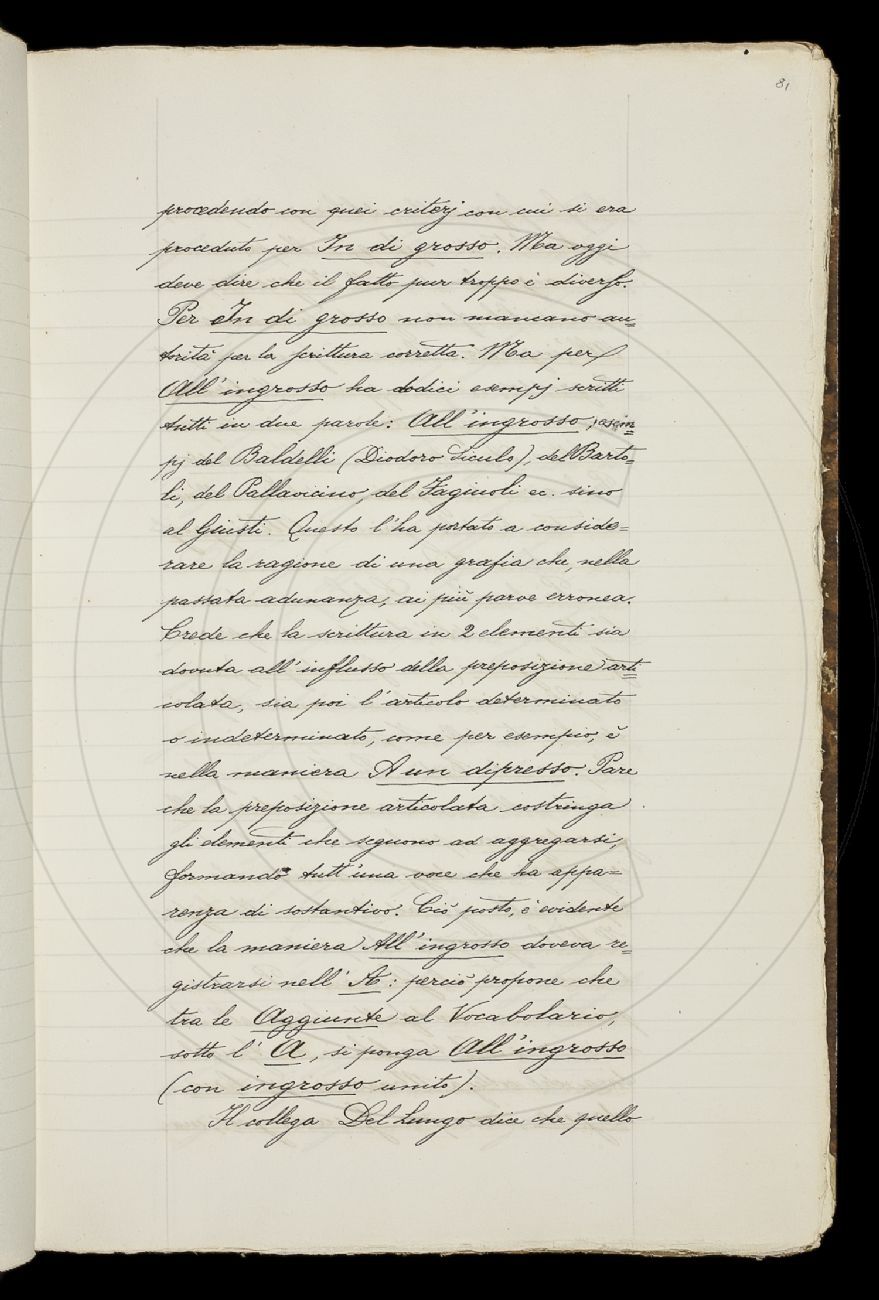 81
procedendo con quei criterj con cui si era
proceduto per In di grosso. Ma oggi
deve dire che il fatto pur troppo è diverso.
Per In di grosso non mancano au=
torità per la scrittura corretta. Ma per
All'ingrosso ha dodici esempj scritti
tutti in due parole: All'ingrosso, esem=
pj del Baldelli (Diodoro Siculo), del Barto=
li, del Pallavicino, del Fagiuoli ec. sino
al Giusti. Questo l'ha portato a conside=
rare la ragione di una grafia che, nella
passata adunanza, ai più parve erronea.
Crede che la scrittura in 2 elementi sia
dovuta all'influsso della preposizione arti=
colata, sia poi l'articolo determinato
o indeterminato, come per esempio, è
nella maniera A un dipresso. Pare
che la preposizione articolata costringa
gli elementi che seguono ad aggregarsi,
formando tutt'una voce che ha appa=
renza di sostantivo. Ciò posto, è evidente
che la maniera All'ingrosso doveva re=
gistrarsi nell'A: perciò propone che
tra le Aggiunte al Vocabolario,
sotto l'A, si ponga All'ingrosso
(con ingrosso unito).
Il collega Del Lungo dice che quello